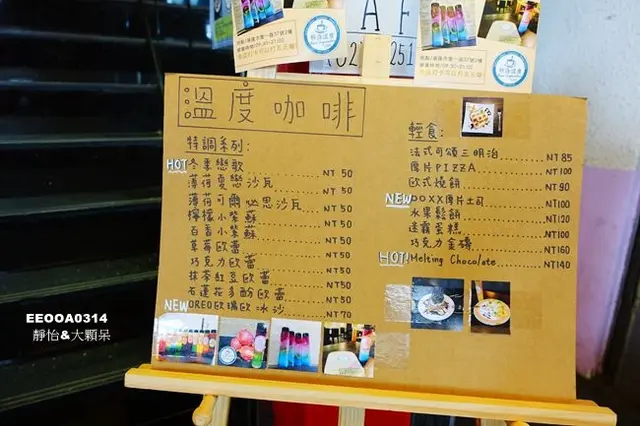 溫度咖啡
特調系列:
HOT 冬季戀歌 NT 50
薄荷夏戀沙瓦 NT 50
薄荷可爾必思沙瓦 NT 50
檸檬小紫蘇 NT 50
百香小紫蘇 NT 50
草莓歐蕾 NT 50
巧克力歐蕾 NT 50
抹茶紅豆歐蕾 NT 50
石蓮花多酚歐蕾 NT 50
NEW OREO歐瑞歐冰沙 NT 70
輕食:
法式可頌三明治 NT 85
厚片PIZZA NT100
歐式燒餅 NT 90
NEW DOXX厚片土司 NT100
水果鬆餅 NT120
迷霧蛋糕 NT100
巧克力金磚 NT160
HOT! Melting Chocolate NT140
EEOOA0314
靜怡&大顆呆